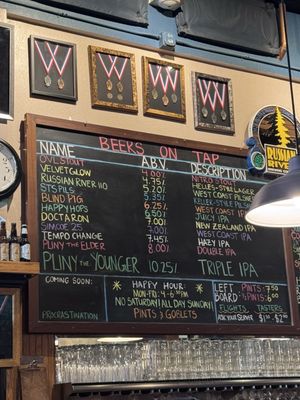 BEERS ON TAP
NAME ABV DESCRIPTION
OVL STOUT 4.00% NITRO STOUT
VELVET GLOW 4.75% HELLES-STYLE LAGER
RUSSIAN RIVER 110 5.00% WEST COAST PILSNER
STS PILS 5.35% KELLER-STYLE PILS
BLIND PIG 6.25% WEST COAST IPA
DOCTARON 6.50% JUICY IPA
HAPPY HOPS 7.00% NEW ZEALAND IPA
SIMCOE 25 WEST COAST IPA
TEMPO CHANGE 7.45% HAZY IPA
PLINY THE ELDER 8.00% DOUBLE IPA
PLINY THE YOUNGER 10.25% TRIPLE IPA
COMING SOON:
HAPPY HOUR
MON-FRI 4-6:30 PM
NO SATURDAY/ALL DAY SUNDAY
PINTS & GOBLETS
LEFT PINTS $7.50
BOARD PINTS $6.00
FLIGHTS TASTERS
ASK YOUR SERVER $1.50 & $2.00
RUSSIAN
RIVER